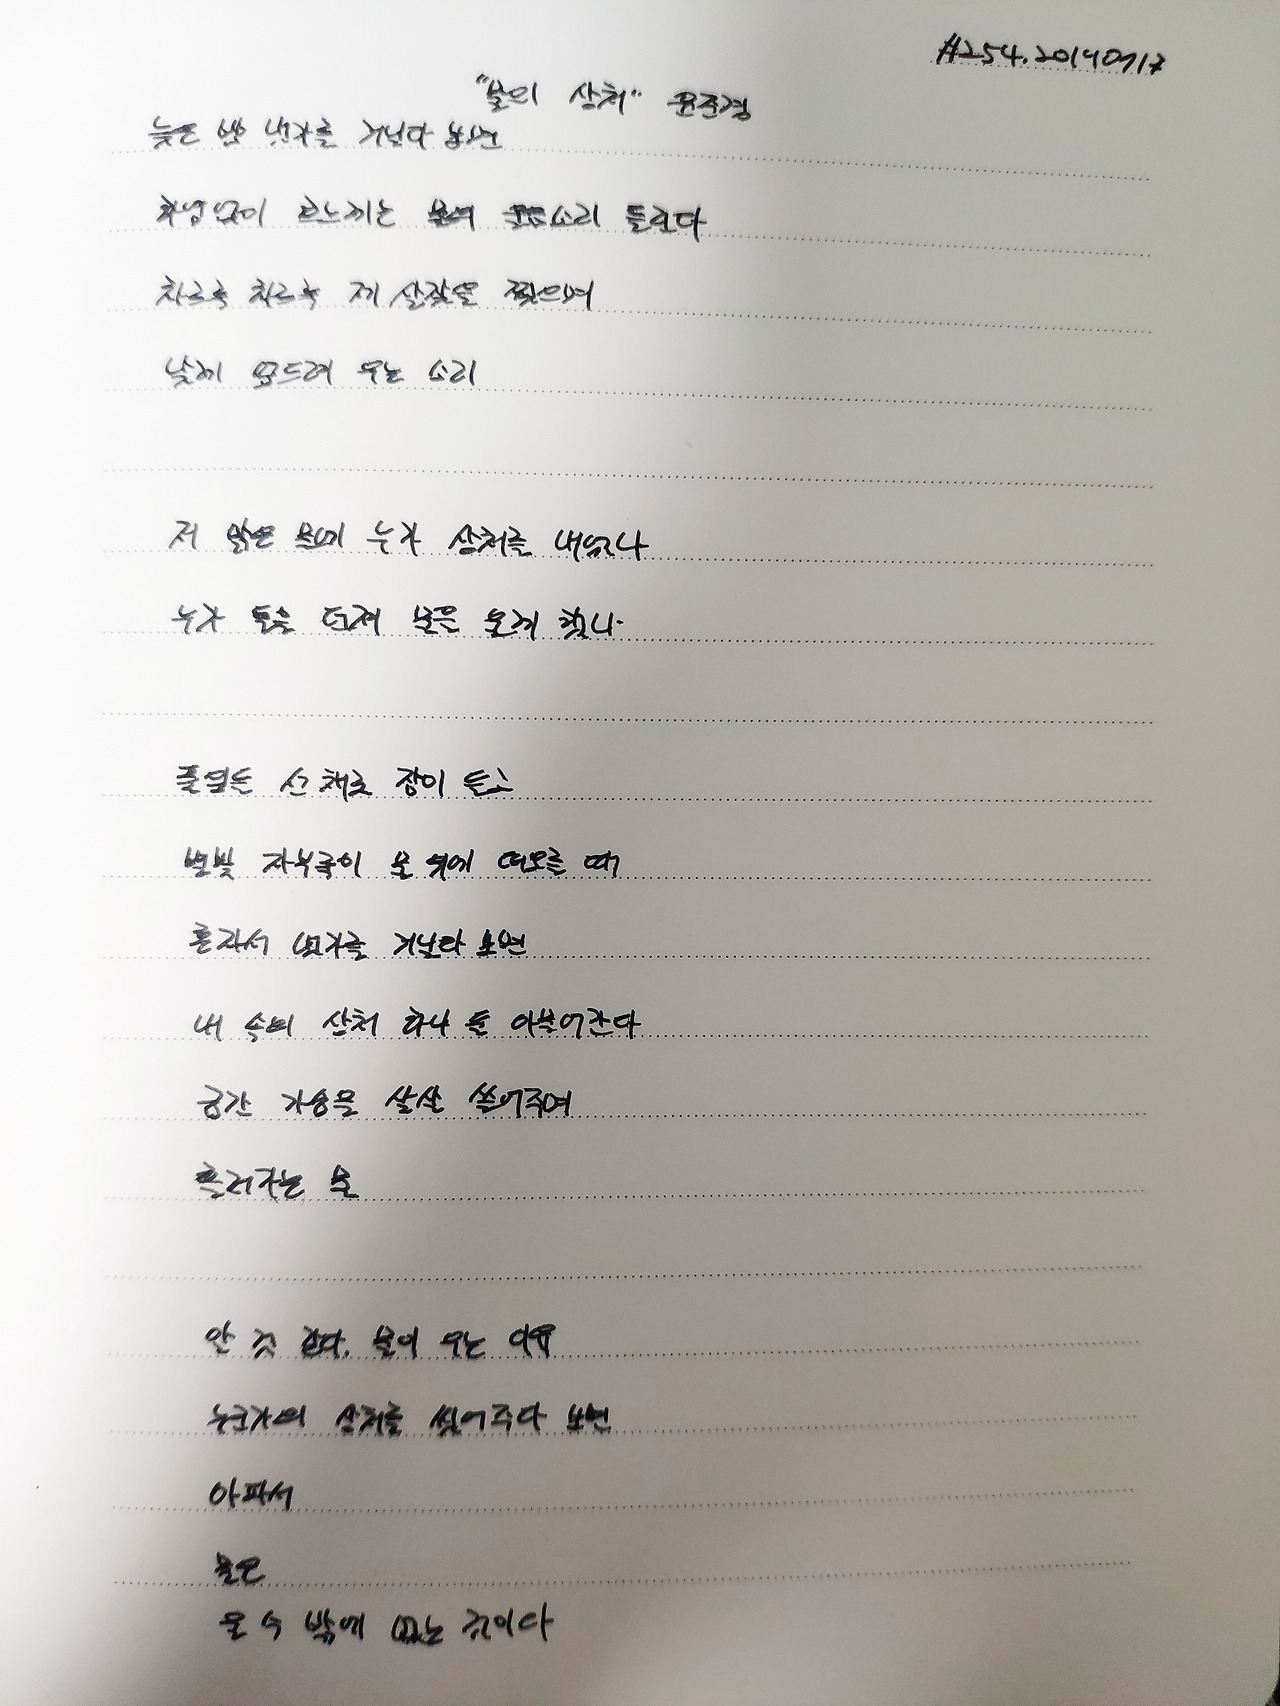 #254. 20190717
"물의 상처" 윤준경
늦은 밤 냇가를 거닐다 보면
하염없이 흐느끼는 물의 울음소리 들린다
차르륵 차르륵 제 살갗을 찢으며
낮게 엎드려 우는 소리
저 맑은 물에 누가 상처를 내었나
누가 돌을 던져 물을 울게 했나
풀잎은 선 채로 잠이 들고
별빛 자부룩이 물 위에 떠오를 때
혼자서 냇가를 거닐다 보면
내 속의 상처 하나 둘 아물어간다
공간 가슴을 살살 쓸어주며
흘러가는 물
안 것 같다. 물이 우는 이유
누군가의 상처를 씻어주다 보면
아파서
물은
울 수 밖에 없는 것이다